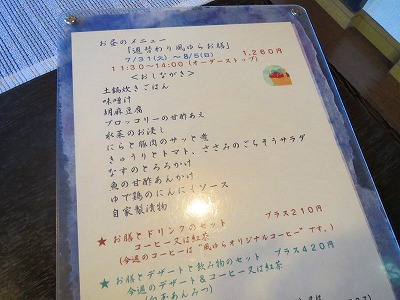 お昼のメニュー
「週替わり風ゆらお膳」
7/31(火)～8/5(日)　1,260円
11:30～14:00 (オーダーストップ)
＜おしながき＞
土鍋炊きごはん
味噌汁
胡麻豆腐
ブロッコリーの甘酢あえ
水菜のお浸し
にらと豚肉のサッと煮
きゅうりとトマト、ささみのごちそうサラダ
なすのとろろかけ
魚の甘酢あんかけ
ゆで鶏のにんにくソース
自家製漬物
★お膳とドリンクのセット　プラス210円
コーヒー又は紅茶
(今週のコーヒーは“風ゆらオリジナルコーヒー”です。)
★お膳とデザートと飲み物のセット　プラス420円
今週のデザート＆コーヒー又は紅茶